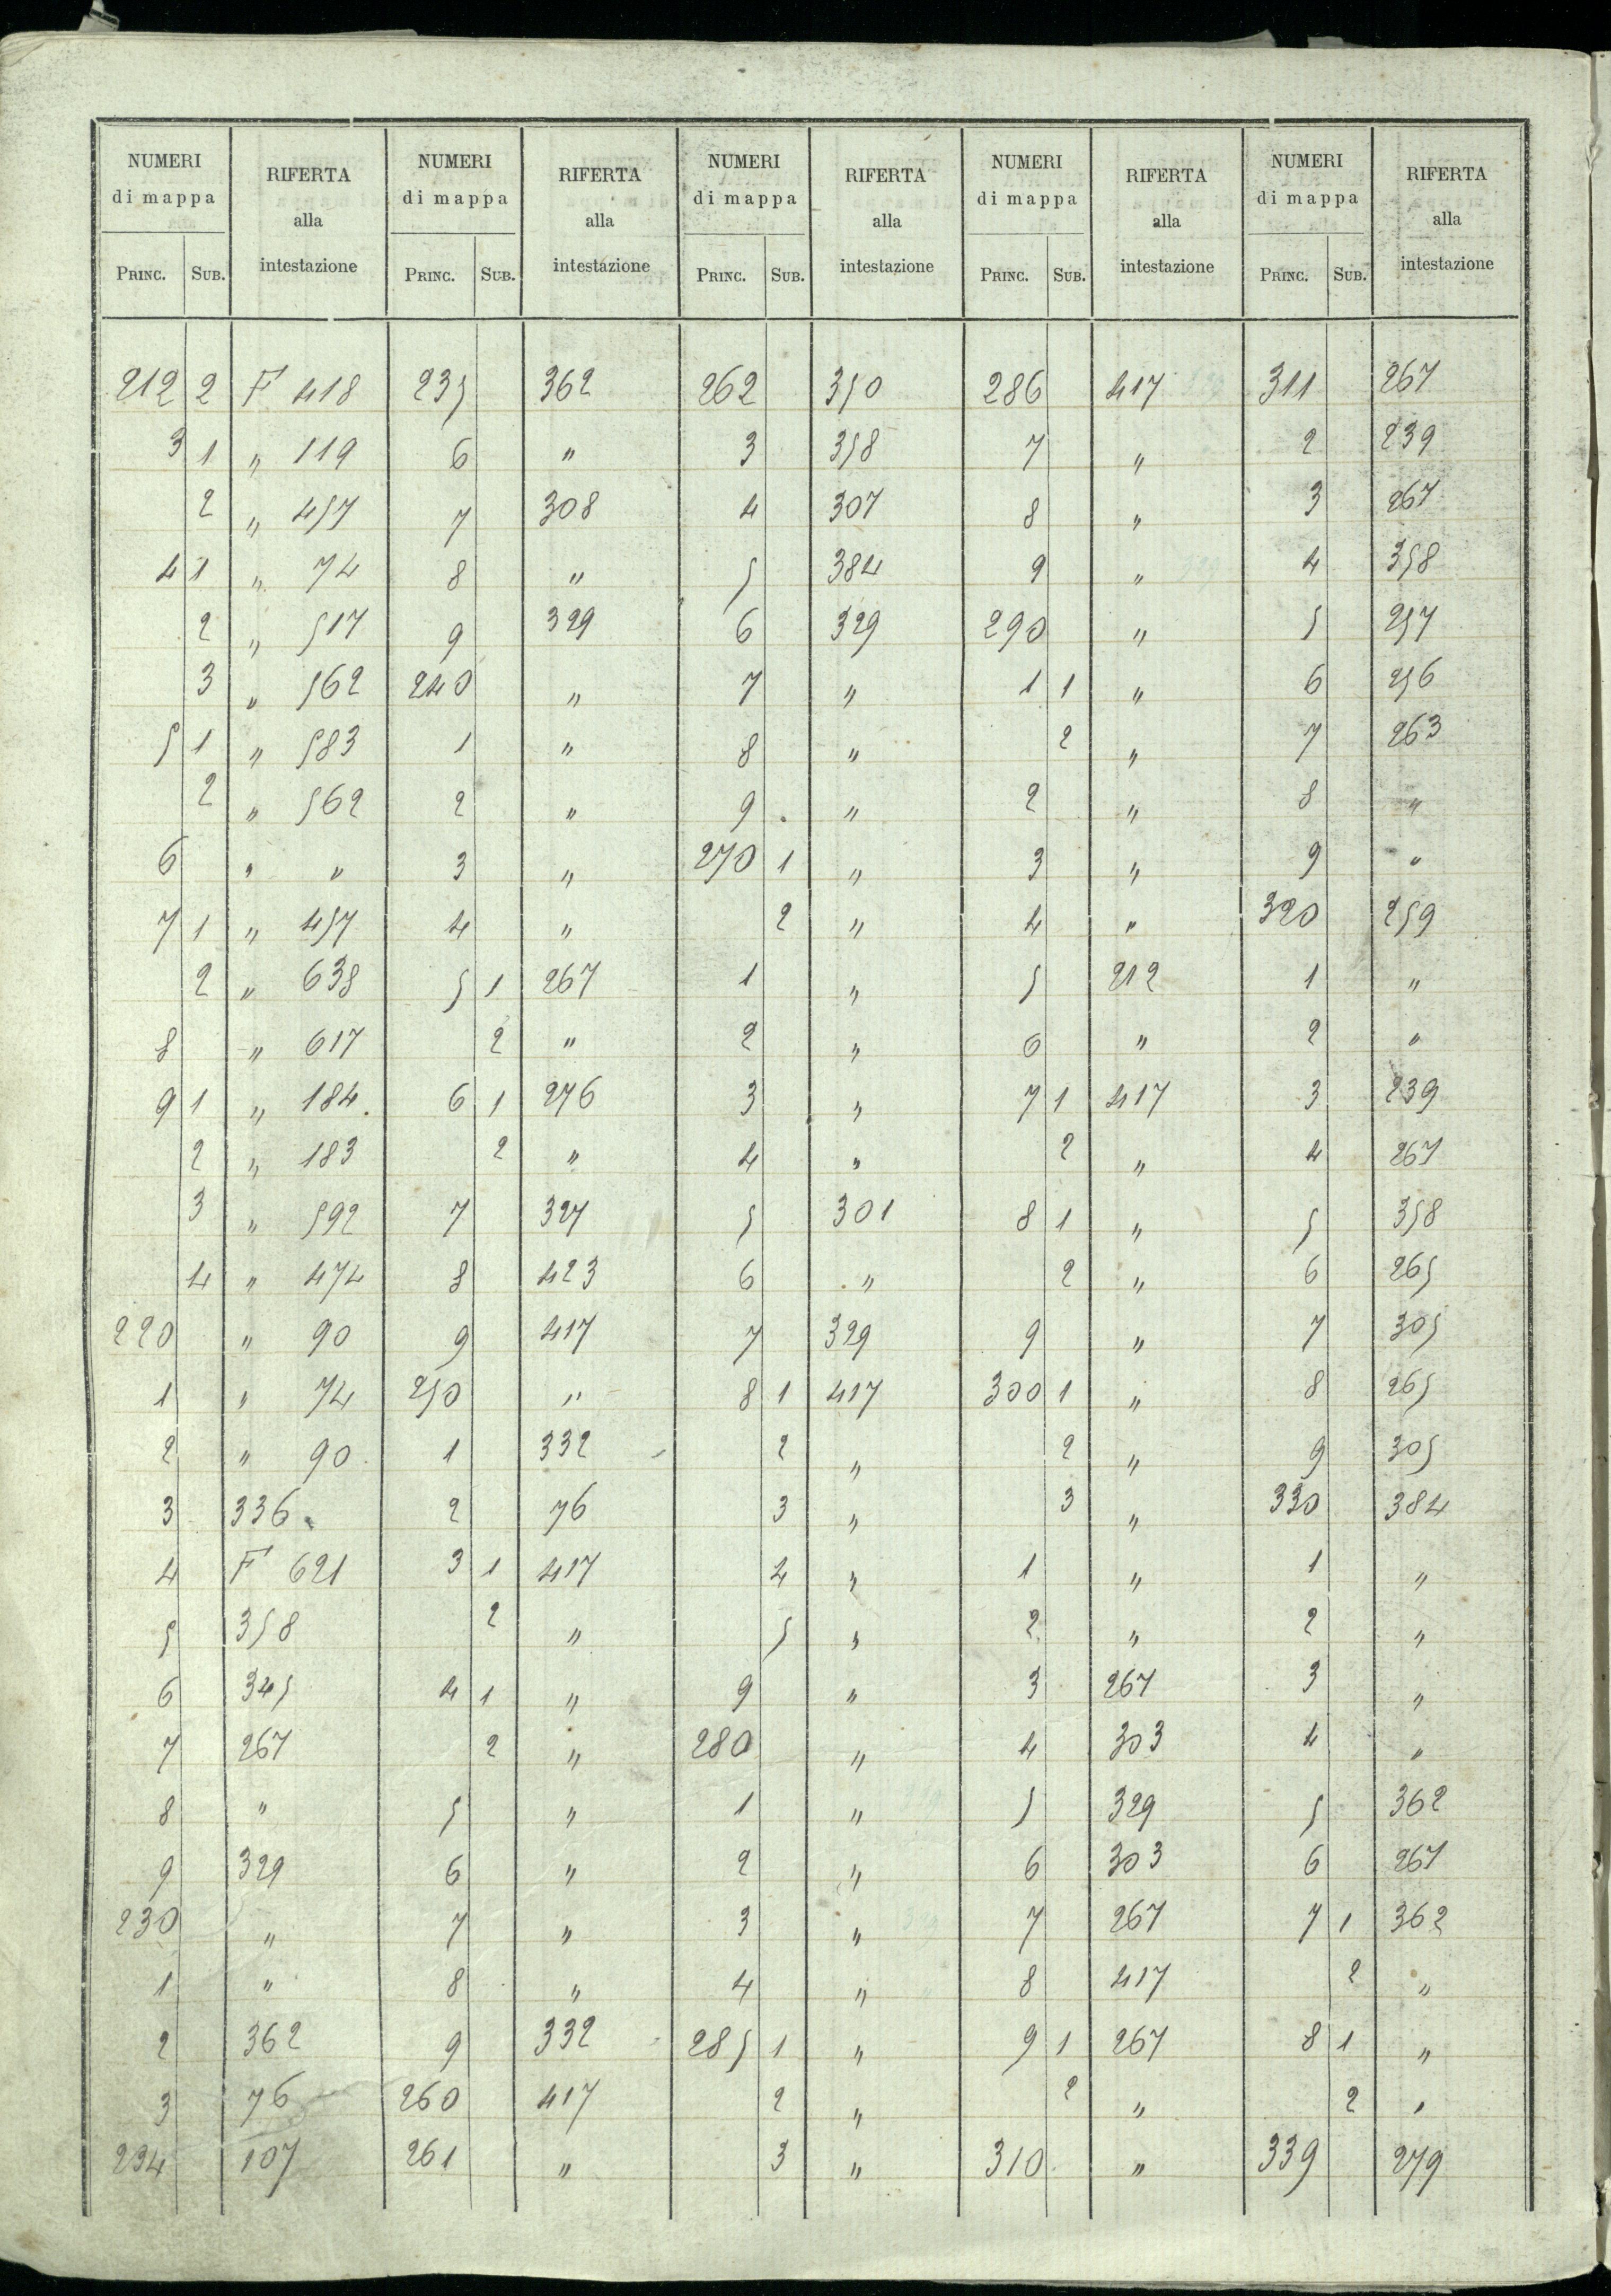 NUMERI di mappa RIFERTA alla intestazione NUMERI di mappa RIFERTA alla intestazione NUMERI di mappa RIFERTA alla intestazione NUMERI di mappa RIFERTA alla intestazione NUMERI di mappa RIFERTA alla intestazione
PRINC. SUB. PRINC. SUB. PRINC. SUB. PRINC. SUB. PRINC. SUB.
212 2 F 418 235 362 262 350 286 417 311 267
3 1 " 119 6 " 3 358 7 " 2 239
2 " 457 7 308 4 307 8 " 3 267
4 1 " 74 8 " 5 384 9 " 4 358
2 " 517 9 329 6 329 290 " 5 257
3 " 562 240 " 7 " 1 1 " 6 256
5 1 " 583 1 " 8 " 2 " 7 263
2 " 562 2 " 9 " 2 " 8 "
6 " " 3 " 270 1 " 3 " 9 "
7 1 " 457 4 " 2 " 4 " 320 259
2 " 638 5 1 267 1 " 5 212 1 "
8 " 617 2 " 2 " 6 " 2 "
9 1 " 184 6 1 276 3 " 7 1 417 3 239
2 " 183 2 " 4 " 2 " 4 267
3 " 592 7 327 5 301 8 1 " 5 358
4 " 474 8 423 6 " 2 " 6 265
220 " 90 9 417 7 329 9 " 7 305
1 " 74 250 " 8 1 417 300 1 " 8 265
2 " 90 1 332 2 " 2 " 9 305
3 336 2 76 3 " 3 " 330 384
4 F 621 3 1 417 4 " 1 " 1 "
5 358 2 " 5 " 2 " 2 "
6 345 4 1 " 9 " 3 267 3 "
7 267 2 " 280 " 4 303 4 "
8 " 5 " 1 " 5 329 5 362
9 329 6 " 2 " 6 303 6 267
230 " 7 " 3 " 7 267 7 1 362
1 " 8 " 4 " 8 417 2 "
2 362 9 332 285 1 " 9 1 267 8 1 "
3 76 260 417 2 " 2 " 2 "
234 107 261 " 3 " 310 " 339 279